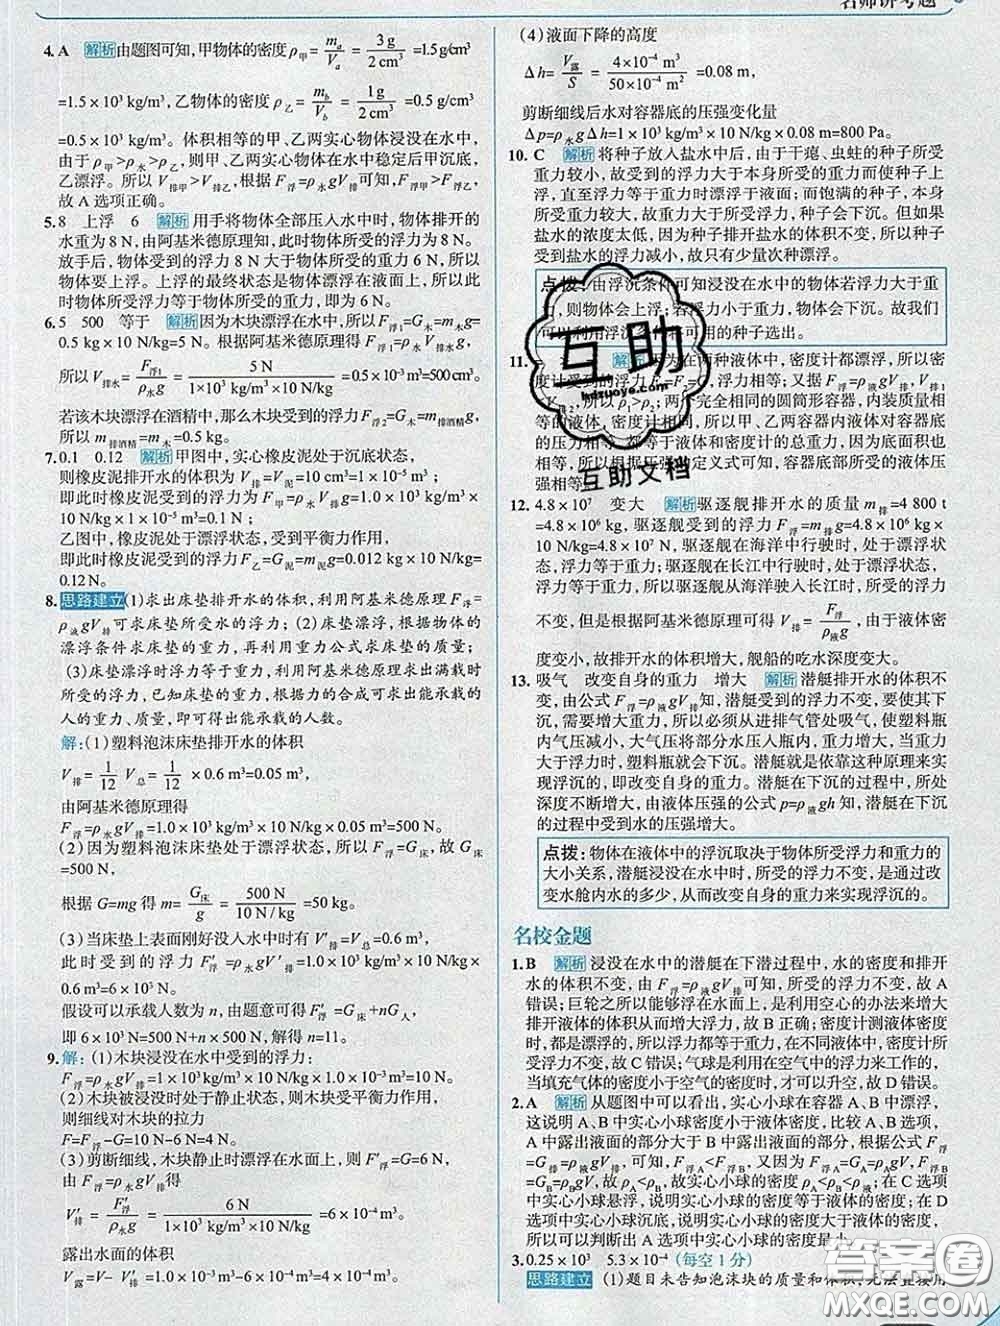 名师讲考题
4. A 解析 由题图可知,甲物体的密度ρ甲=ma/Va=3 g/2 cm³=1.5 g/cm³
=1.5×10³ kg/m³,乙物体的密度ρ乙=mb/Vb=1 g/2 cm³=0.5 g/cm³
=0.5×10³ kg/m³。体积相等的甲、乙两实心物体浸没在水中,
由于ρ甲>ρ水>ρ乙,则甲、乙两实心物体在水中稳定后甲沉底,
乙漂浮。V排甲>V排乙,根据F浮=ρ水gV排可知,F浮甲>F浮乙,
故A选项正确。
5. 8 上浮 6 解析 用手将物体全部压入水中时,物体排开的
水重为8 N,由阿基米德原理知,此时物体所受的浮力为8 N。
放手后,物体受到的浮力8 N大于物体所受的重力6 N,所以
物体要上浮。上浮的最终状态是物体漂浮在液面上,所以此
时物体所受浮力等于物体所受的重力,即为6 N。
6. 5 500 等于 解析 因为木块漂浮在水中,所以F浮1=G木=m木g=
0.5 kg×10 N/kg=5 N。根据阿基米德原理得F浮1=ρ水gV排水,
所以V排水=F浮1/ρ水g=5 N/1×10³ kg/m³×10 N/kg=0.5×10⁻³ m³=500 cm³。
若该木块漂浮在酒精中,那么木块受到的浮力F浮2=G木=m木g,
所以m排酒精=m木=0.5 kg。
7. 0.1 0.12 解析 甲图中,实心橡皮泥处于沉底状态,
则橡皮泥排开水的体积为V排=V物=10 cm³=1×10⁻⁵ m³,
即此时橡皮泥受到的浮力为F甲=ρ水gV排=1.0×10³ kg/m³×
10 N/kg×1×10⁻⁵ m³=0.1 N。
乙图中,橡皮泥处于漂浮状态,受到平衡力作用,
即此时橡皮泥受到的浮力F乙=G泥=m泥g=0.012 kg×10 N/kg=
0.12 N。
8. 思路建立 (1)求出床垫排开水的体积,利用阿基米德原理F浮=
ρ液gV排可求床垫所受水的浮力;(2)床垫漂浮,根据物体的
漂浮条件求床垫的重力,再利用重力公式求床垫的质量。
(3)床垫漂浮时浮力等于重力,利用阿基米德原理求出满载时
所受的浮力,已知床垫的重力,根据力的合成可求出能承载的
人的重力、质量,即可得出能承载的人数。
解:(1)塑料泡沫床垫排开水的体积
V排=1/12 V总=1/12×0.6 m³=0.05 m³,
由阿基米德原理得
F浮=ρ水gV排=1.0×10³ kg/m³×10 N/kg×0.05 m³=500 N。
(2)因为塑料泡沫床垫处于漂浮状态,所以F浮=G床,故G床
=500 N,
根据G=mg得m=G床/g=500 N/10 N/kg=50 kg。
(3)当床垫上表面刚好没入水中时有V′排=V总=0.6 m³,
此时受到的浮力为F′浮=ρ水gV′排=1.0×10³ kg/m³×10 N/kg
×0.6 m³=6×10³ N。
假设可以承载人数为n,由题意得F′浮=G床+nG人,
即6×10³ N=500 N+n×500 N,解得n=11。
9. 解:(1)木块浸没在水中受到的浮力:
F浮=ρ水gV排=1.0×10³ kg/m³×10 N/kg×1×10⁻³ m³=10 N。
(2)木块被浸没时处于静止状态,则木块受平衡力作用,
则细线对木块的拉力
F=F浮-G=10 N-6 N=4 N。
(3)剪断细线,木块静止时漂浮在水面上,则F′浮=G=6 N,
由F浮=ρ水gV排得
V′排=F′浮/ρ水g=6 N/1×10³ kg/m³×10 N/kg=6×10⁻⁴ m³,
露出水面的体积
V露=V-V′排=1×10⁻³ m³-6×10⁻⁴ m³=4×10⁻⁴ m³。
(4)液面下降的高度
Δh=V露/S=4×10⁻⁴ m³/50×10⁻⁴ m²=0.08 m,
剪断细线后水对容器底的压强变化量
Δp=ρ水gΔh=1×10³ kg/m³×10 N/kg×0.08 m=800 Pa。
10. C 解析 将种子放入盐水中后,由于干瘪、虫蛀的种子所受
重力较小,故受到的浮力大于本身所受的重力,种子就会上
浮,直至浮力等于重力时漂浮于液面;而饱满的种子,本身
所受重力较大,故重力大于所受浮力,种子会下沉。但如果
盐水的浓度太低,因为种子排开盐水的体积不变,所以种子受
到盐水的浮力减小,故只有少量次种漂浮。
点拨:由浮沉条件可知浸没在水中的物体若浮力大于重
力,则物体会上浮;若浮力小于重力,物体会下沉。故我们
可以利用浮沉条件将可用的种子选出。
11. = 解析 因为在两种液体中,密度计都漂浮,所以密
度计受到的浮力F1=F2=G,浮力相等;又据F浮=ρ液gV排,V排1
V排2,所以ρ1>ρ2。两个完全相同的圆筒形容器,内装质量相
等的液体,密度计相同,所以甲、乙两容器内液体对容器底
的压力相等,都等于液体和密度计的总重力,因为压力和受
力面积都相等,所以根据压强的定义式可知,容器底部所受的液体压
强相等。
12. 4.8×10⁷ 变大 解析 驱逐舰排开水的质量m排=4 800 t
=4.8×10⁶ kg,驱逐舰受到的浮力F浮=m排g=4.8×10⁶ kg
×10 N/kg=4.8×10⁷ N,驱逐舰在海洋中行驶时,处于漂浮
状态,浮力等于重力;驱逐舰在长江中行驶时,处于漂浮状态,
浮力等于重力,所以驱逐舰从海洋驶入长江时,所受的浮力
不变,但是根据阿基米德原理可得V排=F浮/ρ液g,由于液体密
度变小,故排开水的体积增大,舰船的吃水深度变大。
13. 吸气 改变自身的重力 增大 解析 潜艇排开水的体积不
变,由公式F浮=ρ液gV排知,潜艇受到的浮力不变,要使其下
沉,需要增大重力,所以就必须从进排气管处吸气,使塑料瓶
内气压减小,大气压将部分水压入瓶内,重力增大,当重力
大于浮力时,塑料瓶就会下沉。潜艇就是依靠这种原理来实
现浮沉的,即改变自身的重力。潜艇在下沉的过程中,所处
深度不断增大,由液体压强的公式p=ρ液gh知,潜艇在下沉
的过程中受到水的压强增大。
点拨:物体在液体中的浮沉取决于物体所受浮力和重力的
大小关系,潜艇浸没在水中时,所受的浮力不变,是通过改
变水舱内水的多少,从而改变自身的重力来实现浮沉的。
名校金题
1. B 解析 浸没在水中的潜艇在下潜过程中,水的密度和排开
水的体积不变,由F浮=ρ液gV排可知,所受的浮力不变,故A
错误;巨轮之所以能够浮在水面上,是利用空心的办法来增大
排开液体的体积从而增大浮力,故B正确;密度计测液体密度
时,都是漂浮的,所以浮力都等于重力,在不同液体中,密度
计所受浮力不变,故C错误;气球是利用在空气中的浮力来工作的,
当填充气体的密度小于空气的密度时,才可以升空,故D错误。
2. A 解析 从题图中可以看出,实心小球在容器A、B中漂浮,
这说明A、B中实心小球密度小于液体密度,比较A、B选项,
A中露出液面的部分大于B露出液面的部分,根据公式F浮
=G排=ρ液gV排,可知,F浮A<F浮B,又因为F浮A=GA=ρAgV,F浮B
=GB=ρBgV,故ρA<ρB,故实心小球的密度ρA<ρB<ρ液;在C选项
中实心小球悬浮,说明实心小球的密度等于液体的密度;在D
选项中实心小球沉底,说明实心小球的密度大于液体密度,所
以可以判断出A选项中实心小球密度最小。
3. 0.25×10³ 5.3×10⁻⁴(每空1分)
思路建立 (1)题目未告知泡沫块的质量和体积,无法直接用
互助
hdzuoye.com
互助文档
答案圈
MXQE.COM